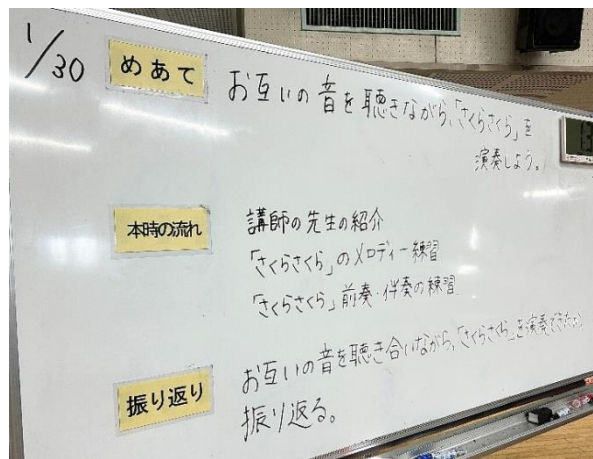 1/30
めあて
お互いの音を聴きながら、「さくらさくら」を
演奏しよう。
本時の流れ
講師の先生の紹介
「さくらさくら」のメロディー練習
「さくらさくら」前奏・伴奏の練習
振り返り
お互いの音を聴き合いながら、「さくらさくら」を演奏できたか
振り返る。